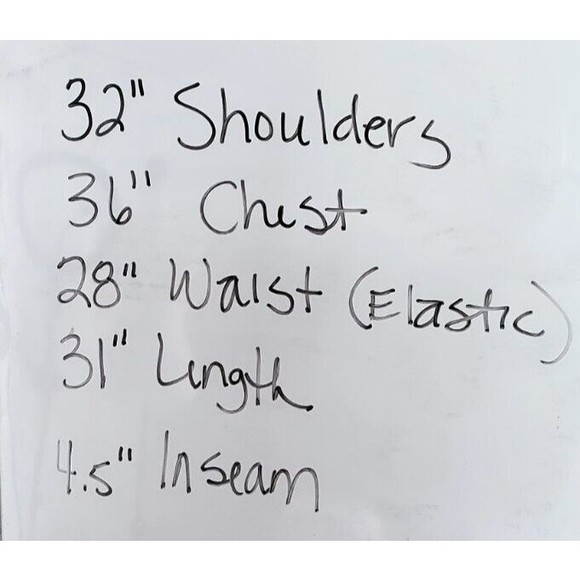 32" Shoulders
36" Chest
28" Waist (Elastic)
31" Length
4.5" Inseam